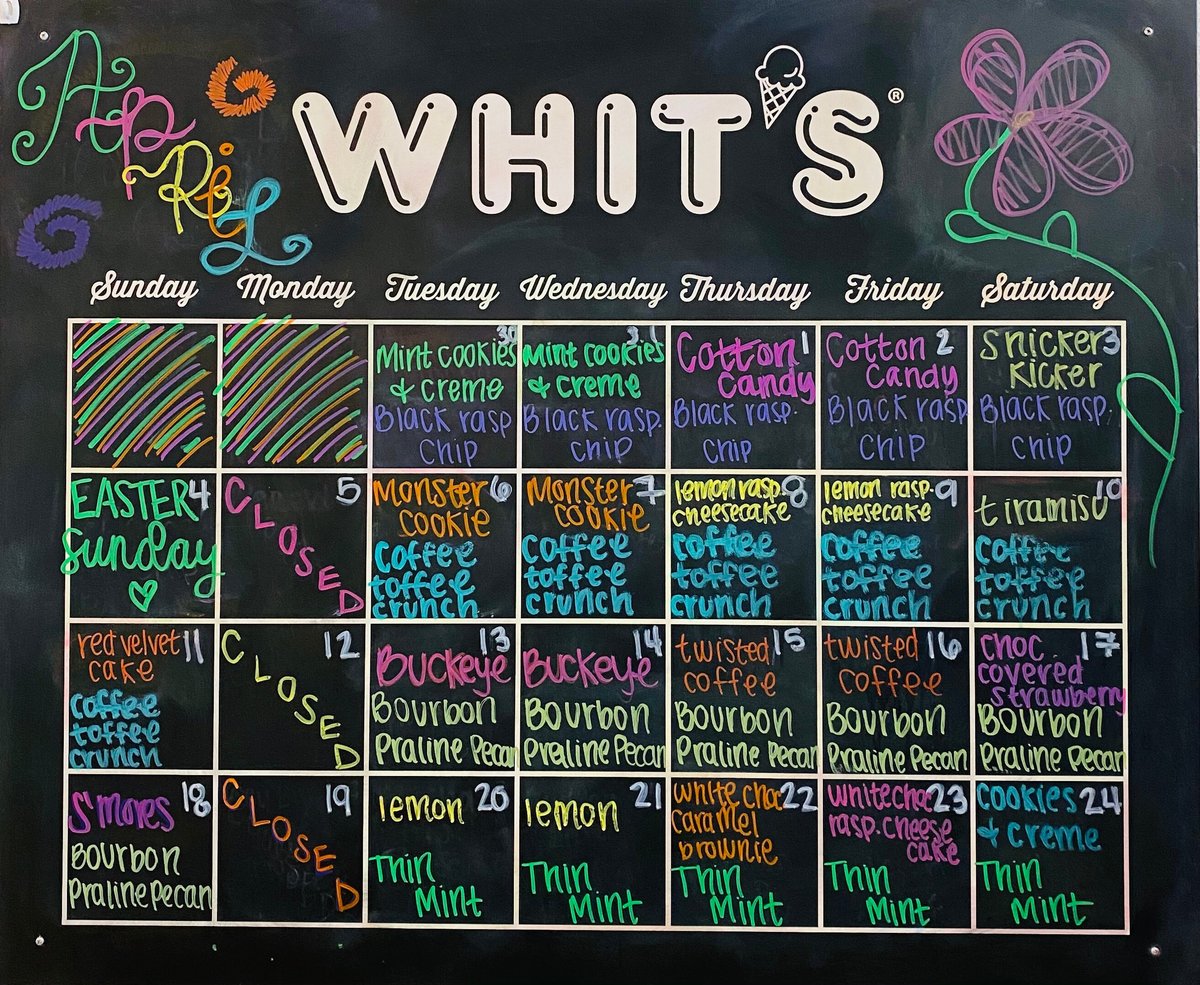 APRiL
WHIT'S®
Sunday Monday Tuesday Wednesday Thursday Friday Saturday
30
Mint cookies
& creme
Black rasp
chip
31
Mint cookies
& creme
Black rasp.
chip
Cotton 1
Candy
Black rasp.
chip
Cotton 2
Candy
Black rasp
chip
Snicker 3
Kicker
Black rasp.
chip
EASTER 4
Sunday
CLOSED 5
Monster 6
cookie
Coffee
toffee
crunch
Monster 7
cookie
Coffee
toffee
crunch
lemon rasp. 8
cheesecake
coffee
toffee
crunch
lemon rasp. 9
cheesecake
coffee
toffee
crunch
10
tiramisu
coffee
toffee
crunch
red velvet 11
cake
coffee
toffee
crunch
CLOSED 12
13
Buckeye
Bourbon
Praline Pecan
14
Buckeye
Bourbon
Praline Pecan
twisted 15
coffee
Bourbon
Praline Pecan
twisted 16
coffee
Bourbon
Praline Pecan
choc 17
covered
strawberry
Bourbon
Praline Pecan
S'mores 18
Bourbon
Praline Pecan
CLOSED 19
lemon 20
Thin
Mint
lemon 21
Thin
Mint
white choc 22
caramel
brownie
Thin
Mint
white choc 23
rasp. cheese
cake
Thin
Mint
cookies 24
& creme
Thin
Mint